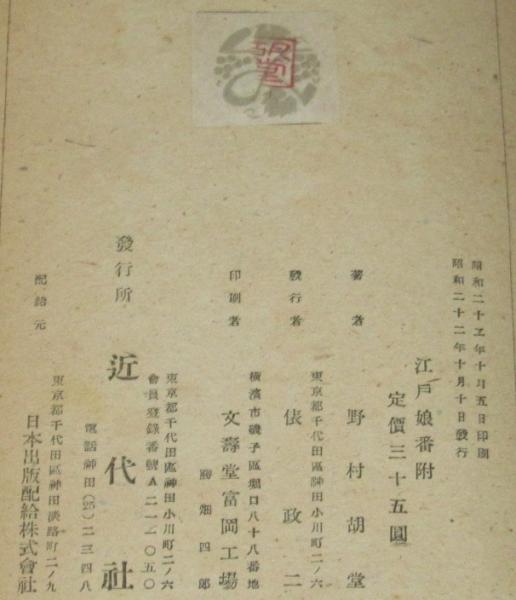 昭和二十二年十月五日印刷
昭和二十二年十月十日發行
江戶娘番附
定價三十五圓
著者
野村胡堂
發行者
東京都千代田區神田小川町二ノ六
俵政二
印刷者
橫濱市磯子區堀口八十八番地
文壽堂富岡工場
畑四郎
發行所
東京都千代田區神田小川町二ノ六
會員登錄番號A二一一〇五〇
近代社
電話神田(25)二三四八
配給元
東京都千代田區神田淡路町二ノ九
日本出版配給株式會社